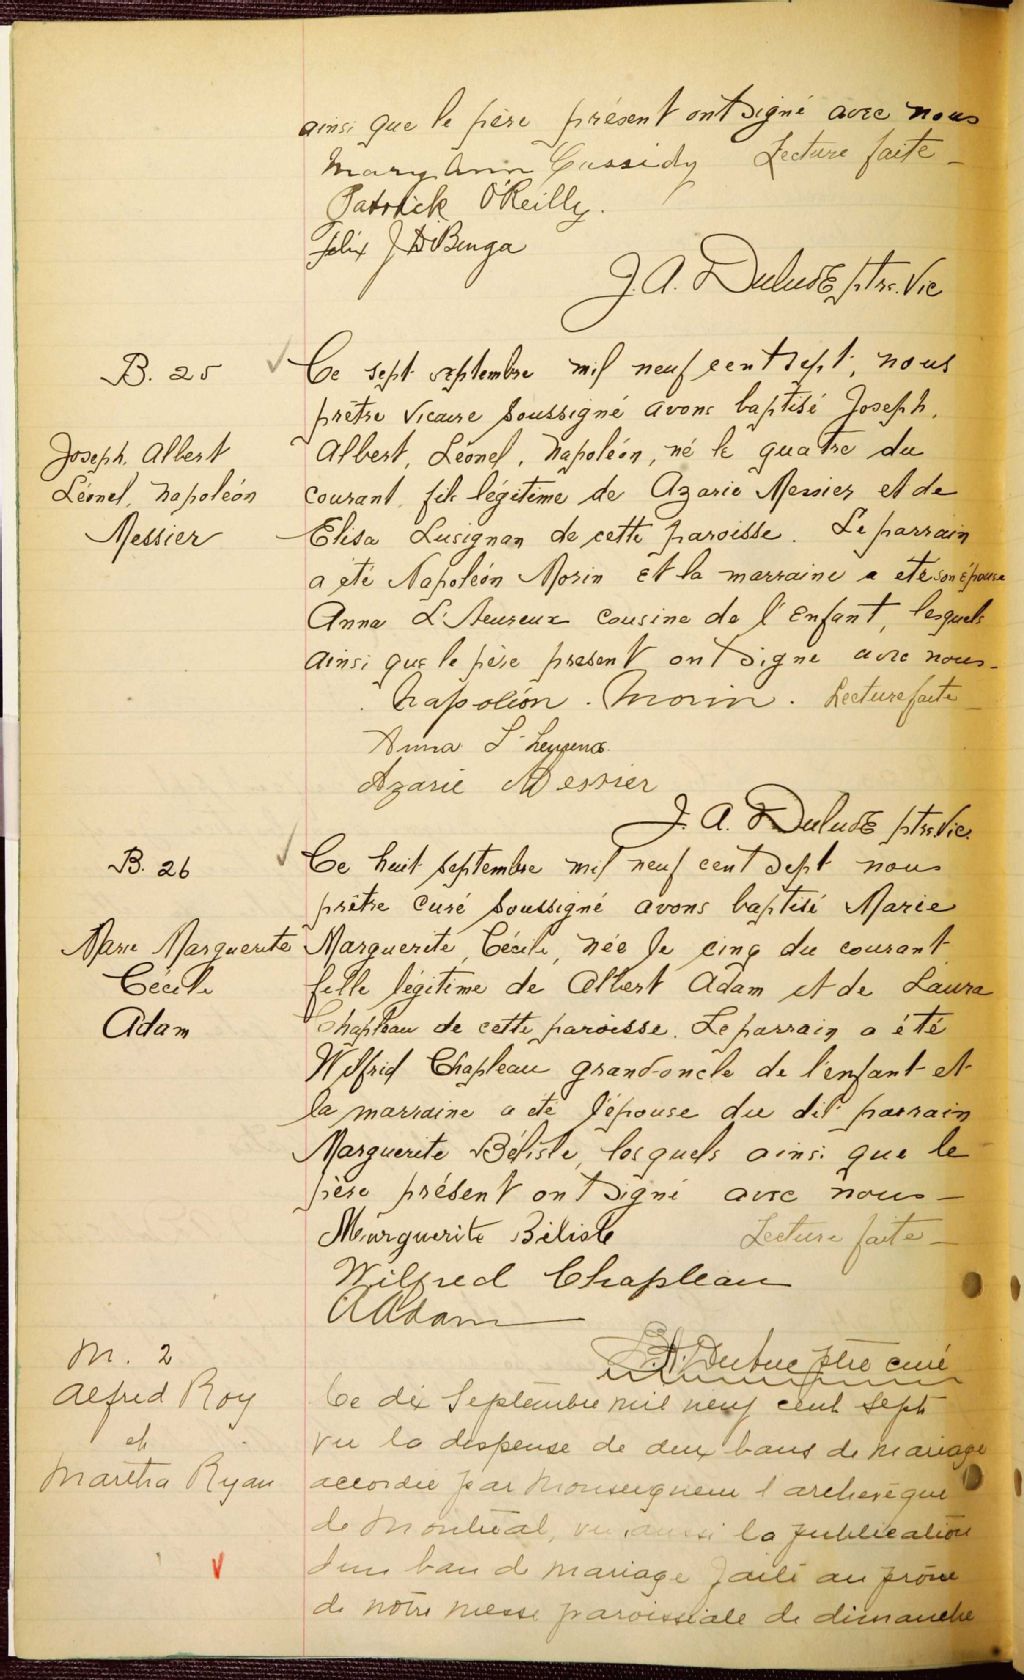 ainsi que le père présent ont signé avec nous
Mary Ann Cassidy Lecture faite —
Patrick O'Reilly.
Felix J
J. A. Dulude ptre. Vic
B. 25
Joseph, Albert
Léonel, Napoléon
Messier
Ce sept septembre mil neuf cent sept, nous
prêtre vicaire soussigné avons baptisé Joseph,
Albert, Léonel, Napoléon, né le quatre du
courant, fils légitime de Azarie Messier et de
Elisa Lusignan de cette paroisse. Le parrain
a été Napoléon Morin et la marraine a été son épouse
Anna L'Heureux cousine de l'enfant, lesquels
ainsi que le père present ont signe avec nous —
Napoléon . Morin . Lecture faite —
Anna L'heureux
Azarie Messier
J. A. Dulude ptre. Vic.
B. 26
Marie Marguerite
Cécile
Adam
Ce huit septembre mil neuf cent sept nous
prêtre curé soussigné avons baptisé Marie
Marguerite, Cécile, née le cinq du courant
fille légitime de Albert Adam et de Laura
Chapleau de cette paroisse. Le parrain a été
Wilfrid Chapleau grand-oncle de l'enfant et
la marraine a été l'épouse du dit parrain
Marguerite Bélisle, lesquels ainsi que le
père présent ont signé avec nous —
Marguerite Bélisle Lecture faite —
Wilfred Chapleau
A Adam
Dubuc ptre curé
M. 2
Alfred Roy
et
Martha Ryan
Ce dix Septembre mil neuf cent sept
vu la dispense de deux bans de mariage
accordée par Monseigneur l archevêque
de Montréal, vu aussi la publication
d'un ban de mariage faite au prône
de notre messe paroissiale de dimanche